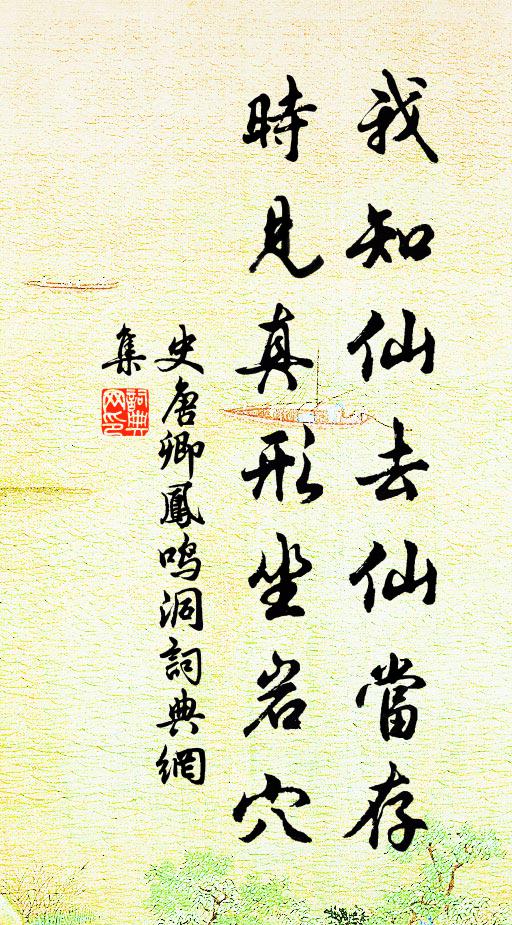 我知仙去仙當存
時見真形坐岩穴
史唐卿鳳鳴洞詞典網
集
詞典網印